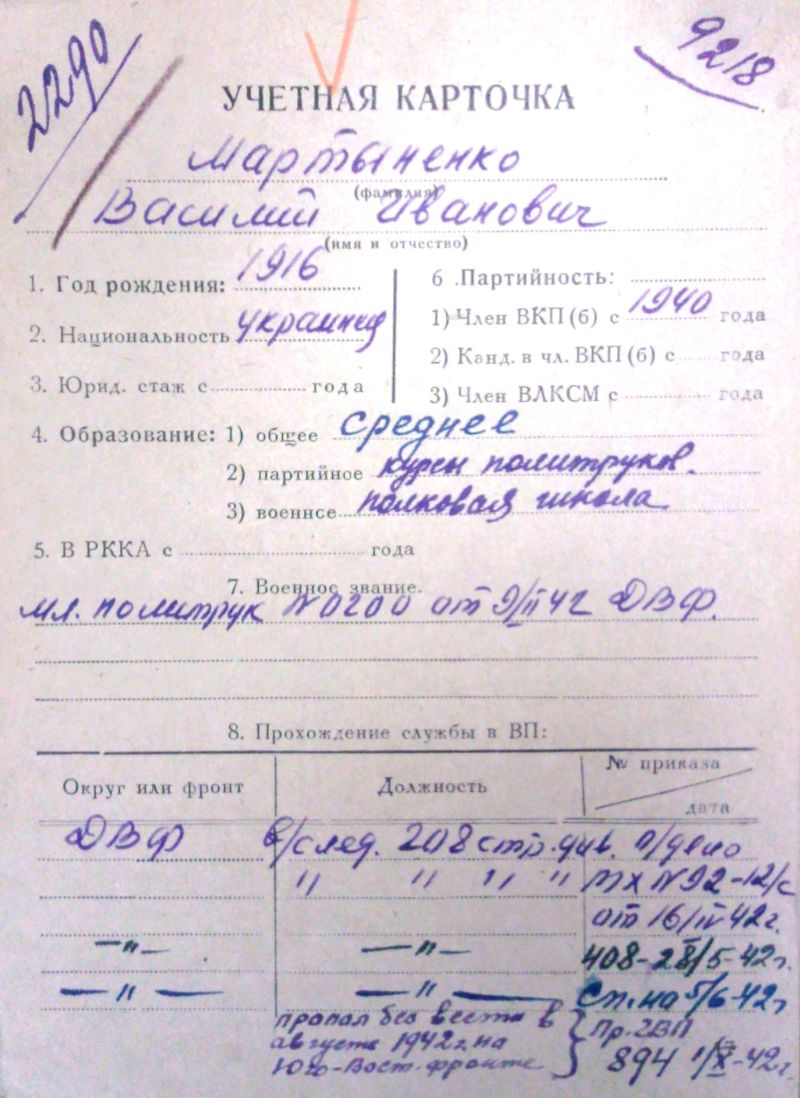 2290
9218
УЧЕТНАЯ КАРТОЧКА
Мартыненко
(фамилия)
Василий Иванович
(имя и отчество)
1. Год рождения: 1916
2. Национальность украинец
3. Юрид. стаж с года
6 .Партийность:
1) Член ВКП(б) с 1940 года
2) Канд. в чл. ВКП(б) с года
3) Член ВЛКСМ с года
4. Образование: 1) общее среднее
2) партийное курсы политруков.
3) военнсе полковая школа
5. В РККА с года
7. Военное звание.
мл. политрук №0200 от 9/II 42 ДВФ.
8. Прохождение службы в ВП:
Округ или фронт Должность № приказа
дата
ДВФ в/след. 208 стр. див. п/дело
" " " " тх №92-12/с
от 16/IV 42г.
—"— —"— 408-28/5-42г.
—"— —"— Сп. на 5/6-42г
пропал без вести в
августе 1942г. на
Юго-Вост. фронте
Пр. ГВП
894 1/X-42г.